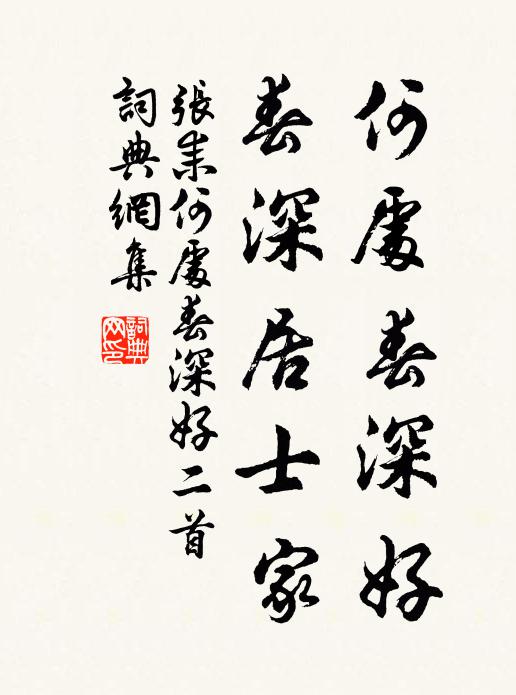 何處春深好
春深居士家
張耒何處春深好二首
詞典網集
詞典网印